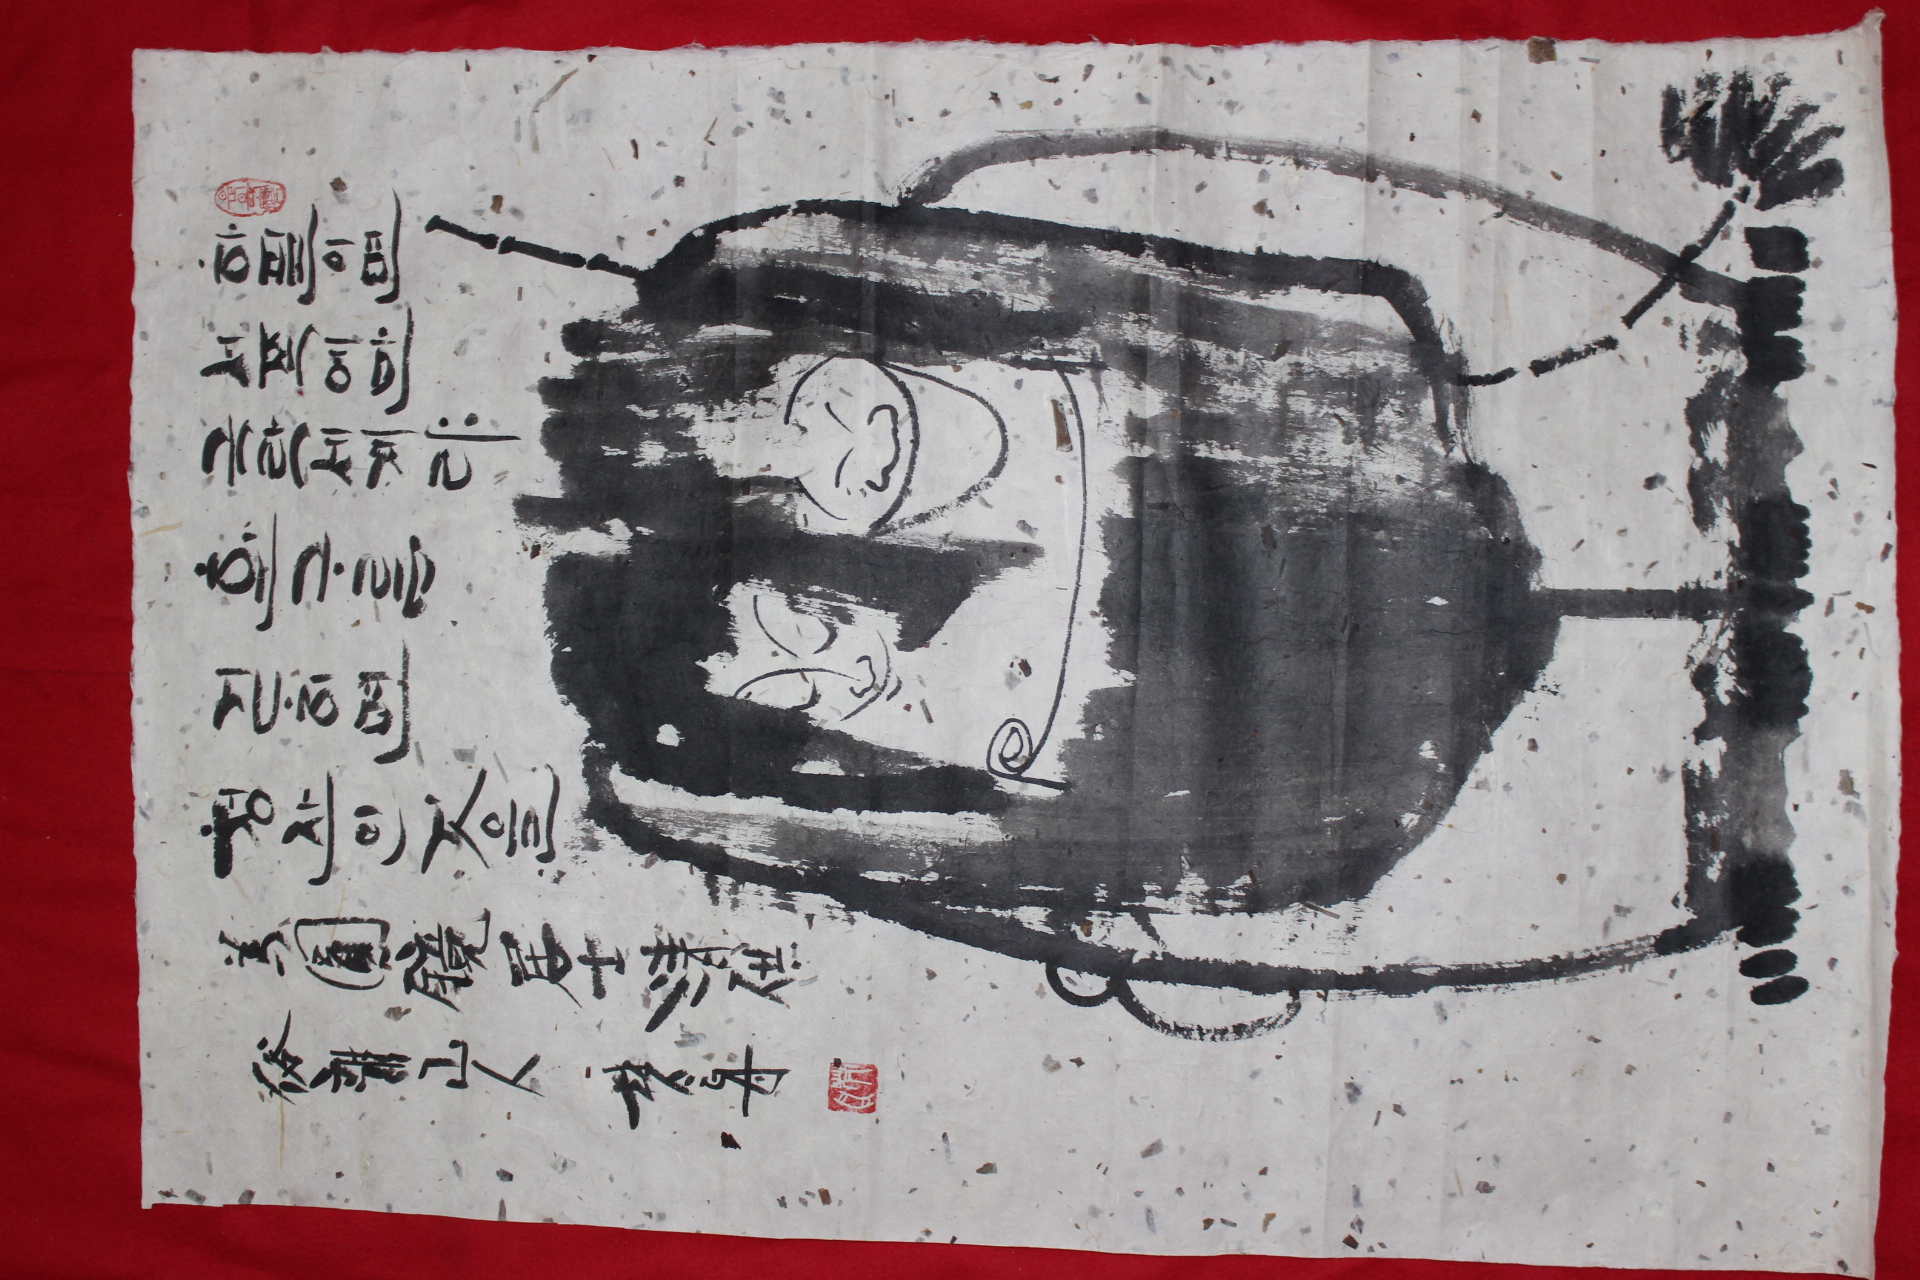 하필이면
서쪽에만
극락세계랴
흰구름
걷히면
청산인 것을
為圓鏡居士清供
俗離山人 梵舟